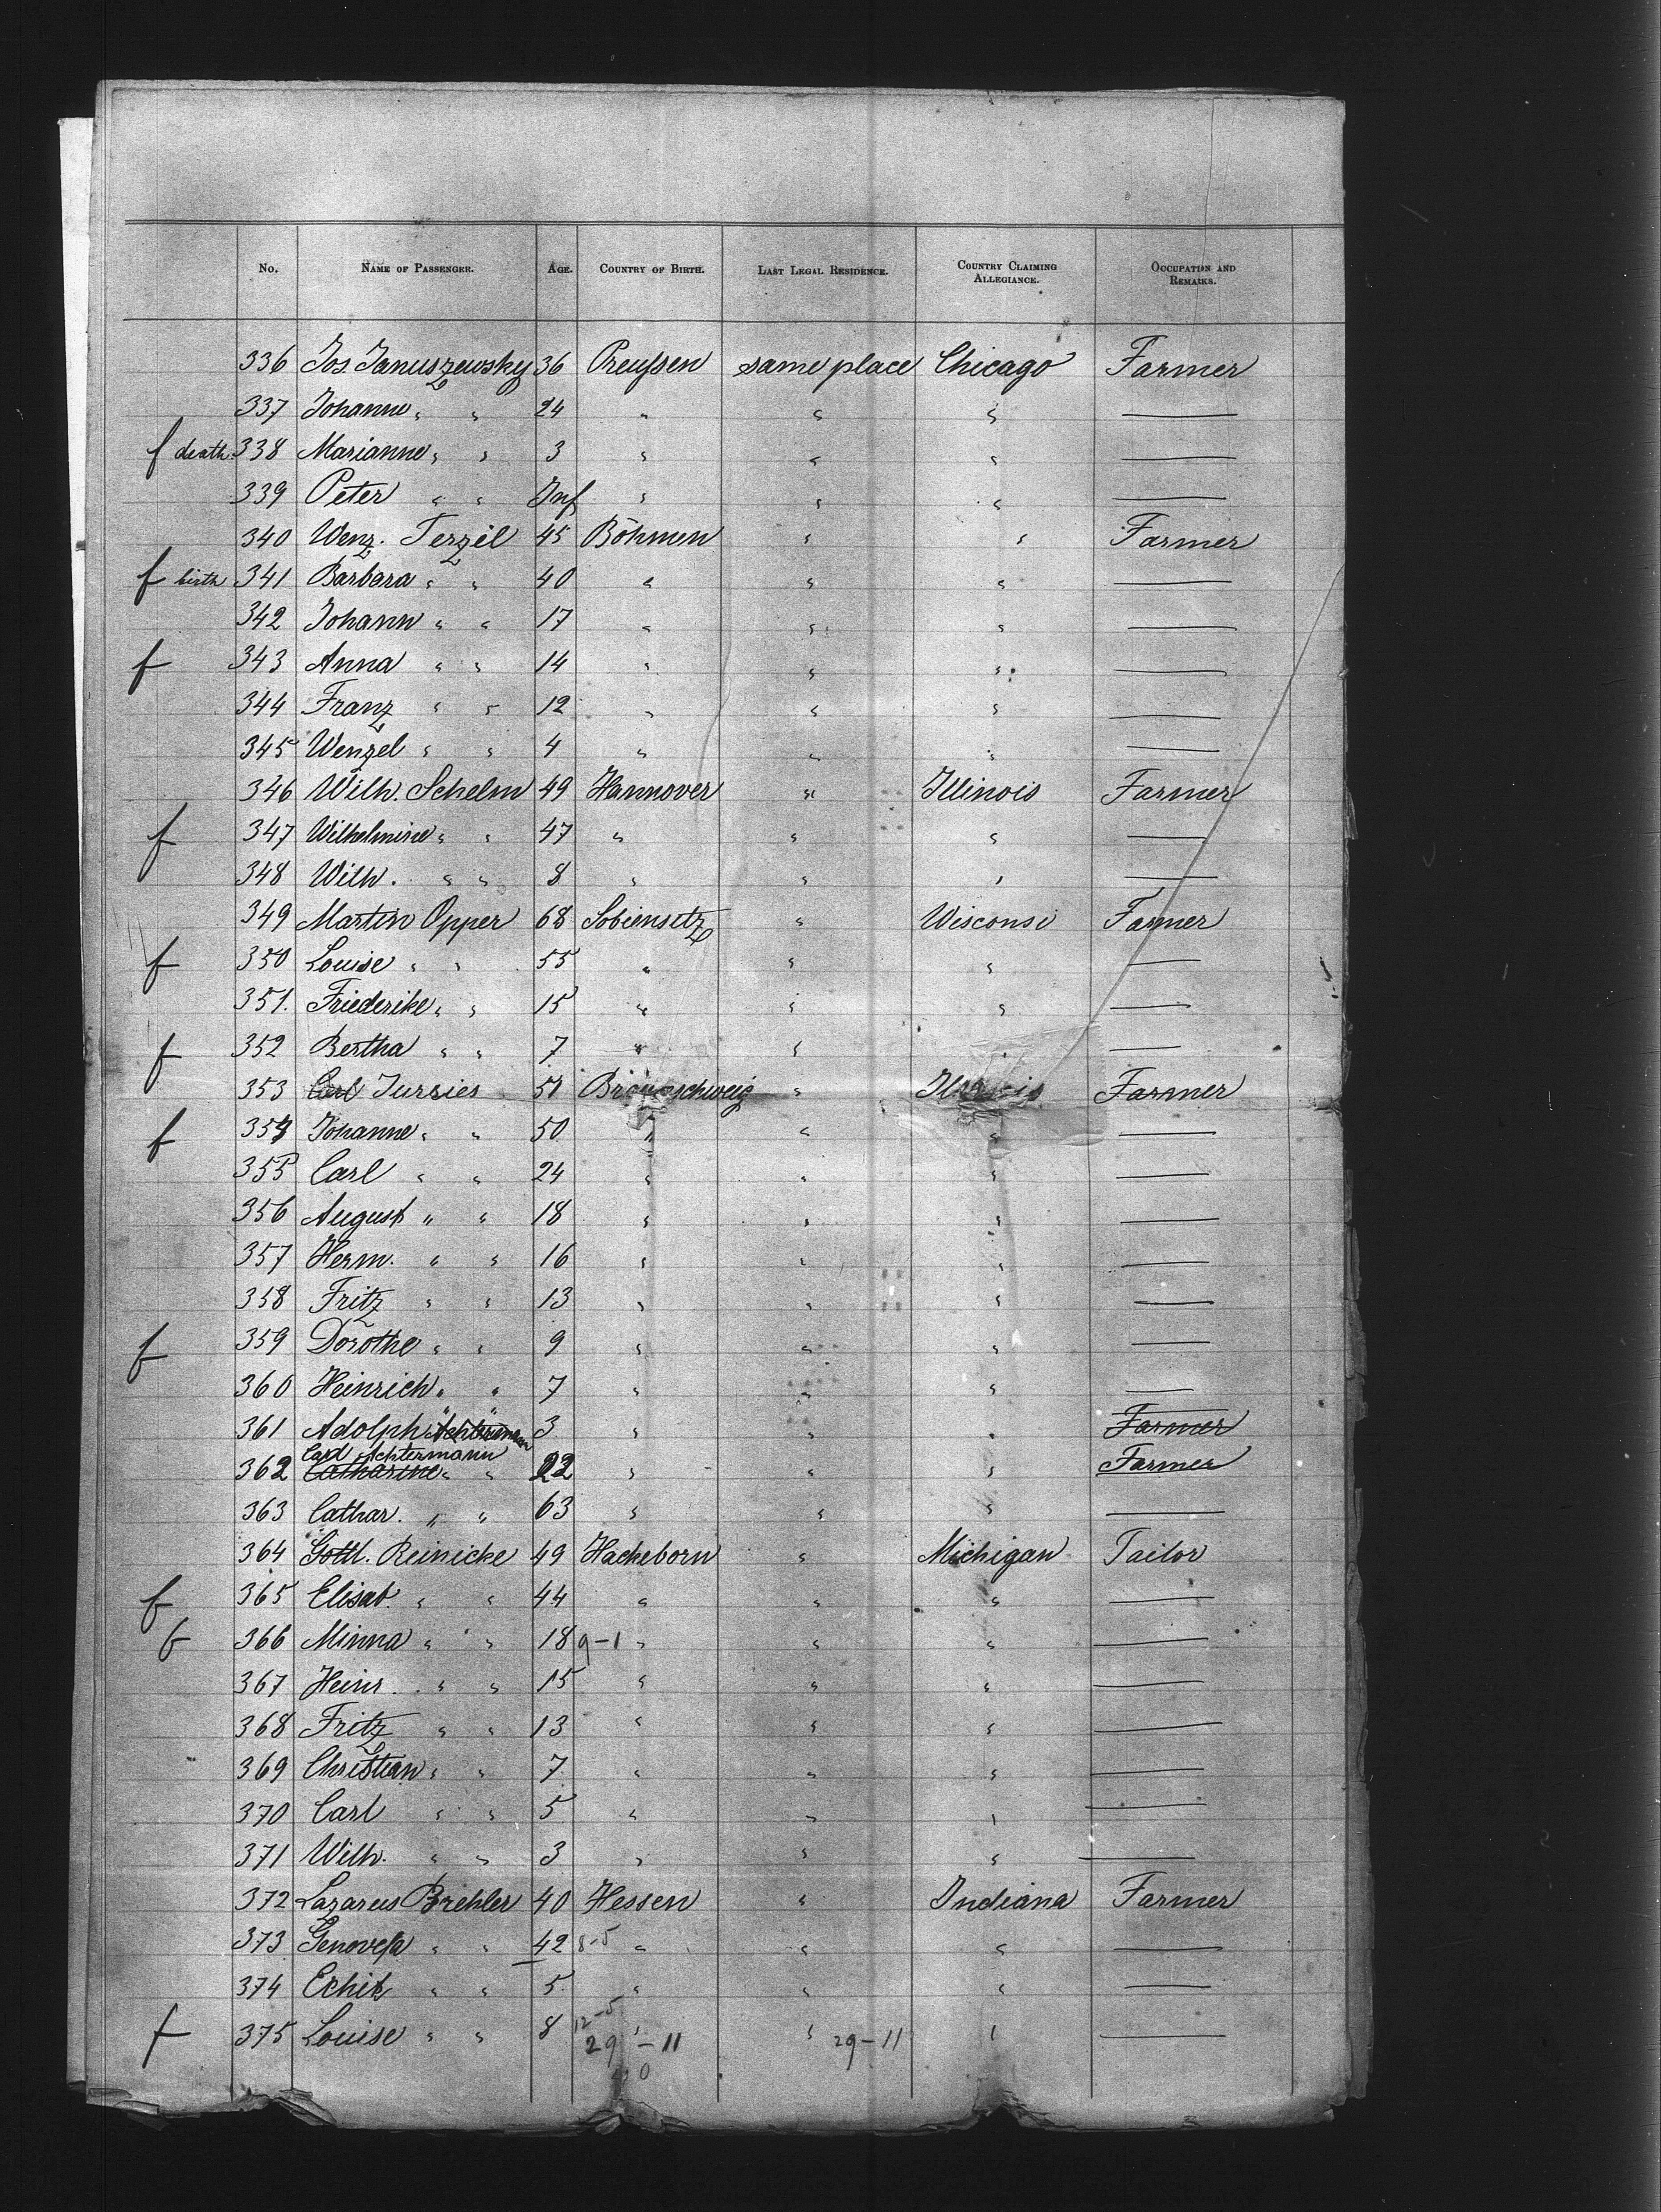 No. NAME OF PASSENGER. AGE. COUNTRY OF BIRTH. LAST LEGAL RESIDENCE. COUNTRY CLAIMING ALLEGIANCE. OCCUPATION AND REMARKS.
336 Jos. Januszewsky 36 Preußen same place Chicago Farmer
337 Johanne " " 24 " " " —
f death 338 Marianne " " 3 " " " —
339 Peter " " Inf " " " —
340 Wenz. Terzil 45 Böhmen " " Farmer
f birth 341 Barbara " " 40 " " " —
342 Johann " " 17 " " " —
f 343 Anna " " 14 " " " —
344 Franz " " 12 " " " —
345 Wenzel " " 4 " " " —
346 Wilh. Schelm 49 Hannover " Illinois Farmer
f 347 Wilhelmine " " 47 " " " —
348 Wilh. " " 8 " " " —
349 Martin Opper 68 Sobiensitz " Wisconsi Farmer
f 350 Louise " " 55 " " " —
351. Friederike " " 15 " " " —
f 352 Bertha " " 7 " " " —
353 Carl Jurries 51 Braunschweig " Illinois Farmer
f 354 Johanne " " 50 " " " —
355 Carl " " 24 " " " —
356 August " " 18 " " " —
357 Herm. " " 16 " " " —
358 Fritz " " 13 " " " —
f 359 Dorothe " " 9 " " " —
360 Heinrich " " 7 " " " —
361 Adolph " " Achtermann 3 " " " Farmer
Carl Achtermann
362 Catharine " " 22 " " " Farmer
363 Cathar. " " 63 " " " —
364 Gottl. Reinicke 49 Hackeborn " Michigan Tailor
f 365 Elisab. " " 44 " " " —
f 366 Minna " " 18 9-1 " " " —
367 Heinr. " " 15 " " " —
368 Fritz " " 13 " " " —
369 Christian " " 7 " " " —
370 Carl " " 5 " " " —
371 Wilh. " " 3 " " " —
372 Lazarus Brehler 40 Hessen " Indiana Farmer
373 Genovefa " " 42 8-5 " " " —
374 Echit " " 5 " " " —
f 375 Louise " " 8 12-5 " " " —
29-11 29-11